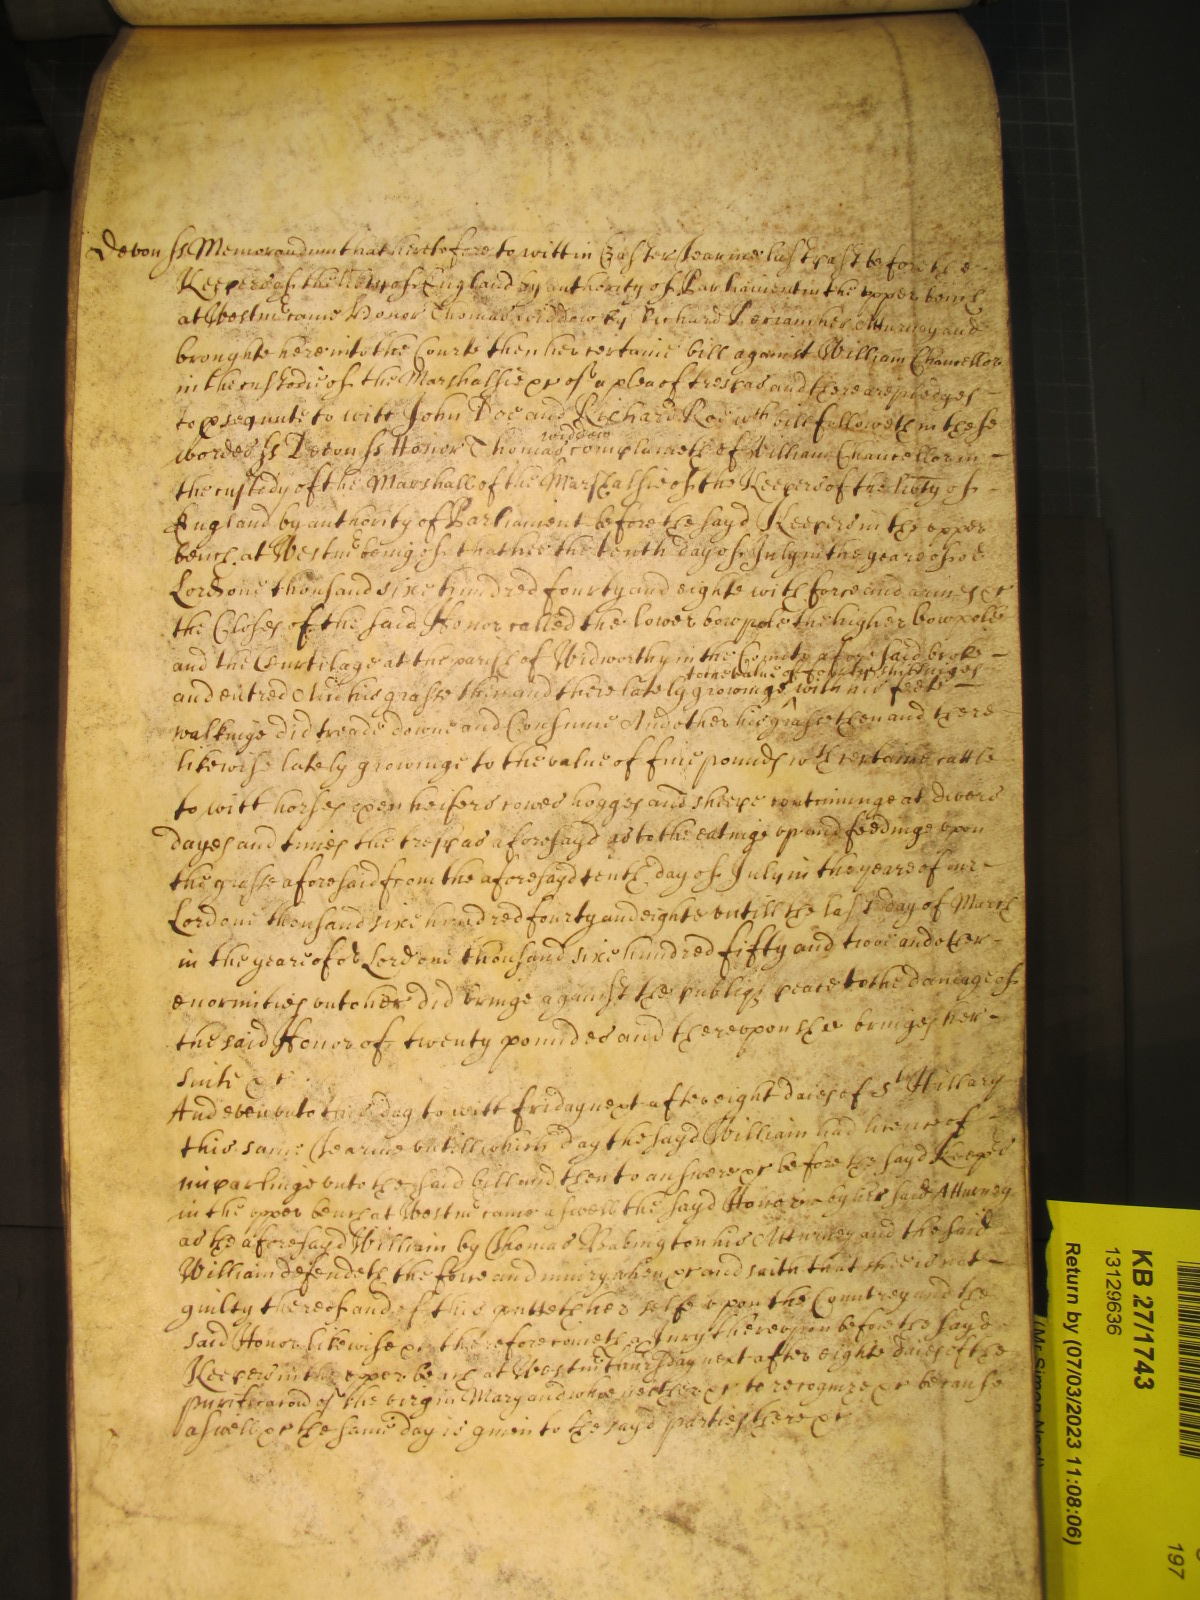 Devon ss Memorandum that heretofore to witt in Easter Tearme last past before the
Keepers of the libty of England by authority of Parliament in the upper bench
at Westmr came Honor Thomas widdow by Richard her Atturney and
broughte here into the Courte then her certaine bill against William Chancellor
in the custodie of the Marshalsie &c of a plea of trespas and there are pledges
to psequute to witt John Doe and Richard Roe wch bill followeth in these
wordes ss Devon ss Honor Thomas widdow complaineth of William Chancellor in
the custody of the Marshall of the Marshalsie of the Keepers of the libty of
England by authority of Parliament before the sayd Keepers in the upper
bench at Westmr being of that hee the tenth day of July in the yeare of or
Lord one thousand sixe hundred fourty and eighte with force and armes &c
the Closes of the said Honor called the lower bowpole the higher bowpole
and the Curtilage at the parish of Widworthy in the County aforesaid broke
and entred And his grasse then and there lately growinge to the value of fourty shillinges with his feete
walkinge did treade downe and Consume And other his grasse then and there
likewise lately growinge to the value of five pounds wth certaine cattle
to witt horses oxen heifers cowes hogges and sheepe continuinge at divers
dayes and times the trespas aforesayd as to the eatinge up and feedinge upon
the grasse aforesaid from the aforesayd tenth day of July in the yeare of our
Lord one thousand sixe hundred fourty and eighte untill the last day of March
in the yeare of or Lord one thousand sixe hundred fifty and twoe and other
enormities unto her did bringe against the publiq peace to the damage of
the said Honor of twenty poundes and thereupon shee bringes her
suite &c
And even unto this day to witt friday next after eight daies of St Hillary
this same Tearme untill which day the sayd William had licence of
imparlinge unto the said bill and then to answere &c before the sayd Keeps
in the upper bench at Westmr came aswell the sayd Honor by her said Atturney
as the aforesayd William by Thomas Babington his Atturney and the said
William defendeth the force and iniury when &c and saith that hee is not
guilty thereof and of this putteth her selfe upon the Countrey and the
said Honor likewise &c therefore cometh a Jury thereupon before the sayd
Keepers in the upper bench at Westmr thursday next after eighte daies of the
purificacion of the virgin Mary and whoe neither &c to recognize &c because
aswell &c the same day is given to the sayd parties there &c
KB 27/1743
13129636
Return by (07/03/2023 11:08:06)
(Mr Simon Neal)
197